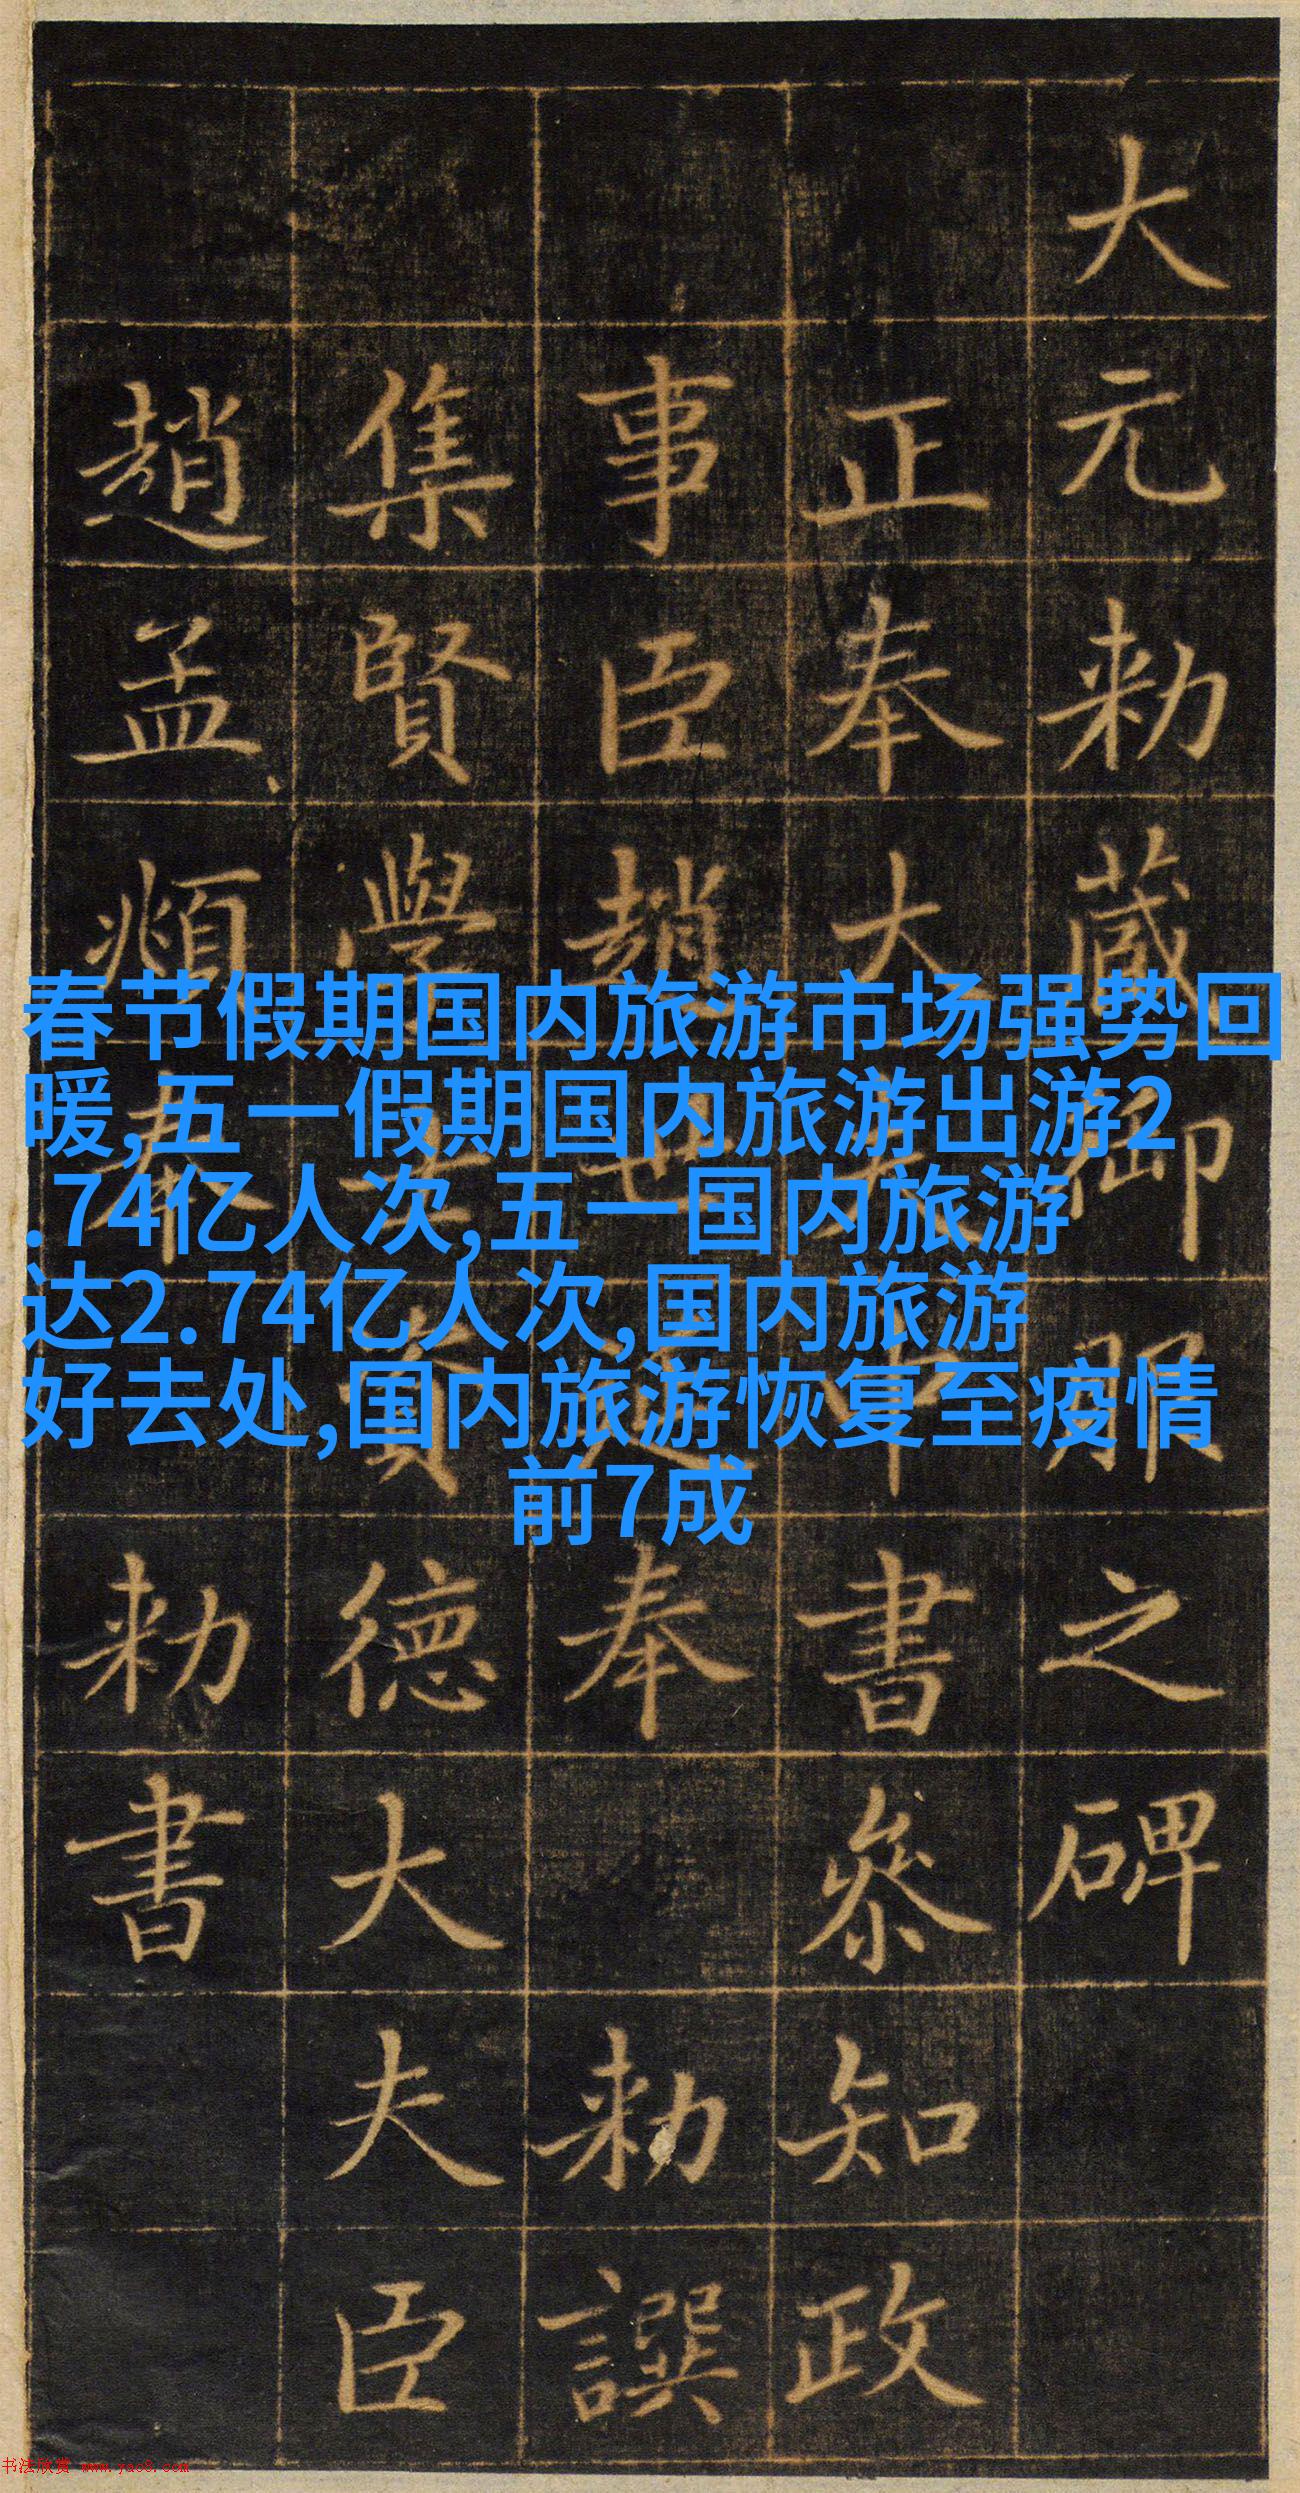 大元勑藏御服之碑
正奉大夫中書參知政
事臣趙世延奉勑譔
集賢學士資德大夫臣
趙孟頫奉勑書
春节假期国内旅游市场强势回
暖,五一假期国内旅游出游2
.74亿人次,五一国内旅游
达2.74亿人次,国内旅游
好去处,国内旅游恢复至疫情
前7成
书法欣赏 www.yac8.com